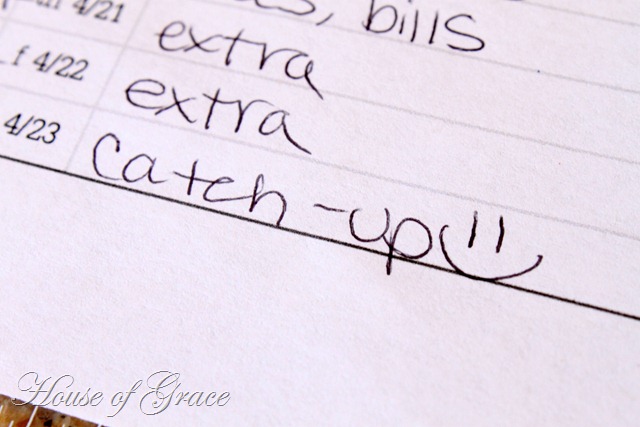 4/21 , bills
extra
f 4/22 extra
4/23 catch-up
House of Grace